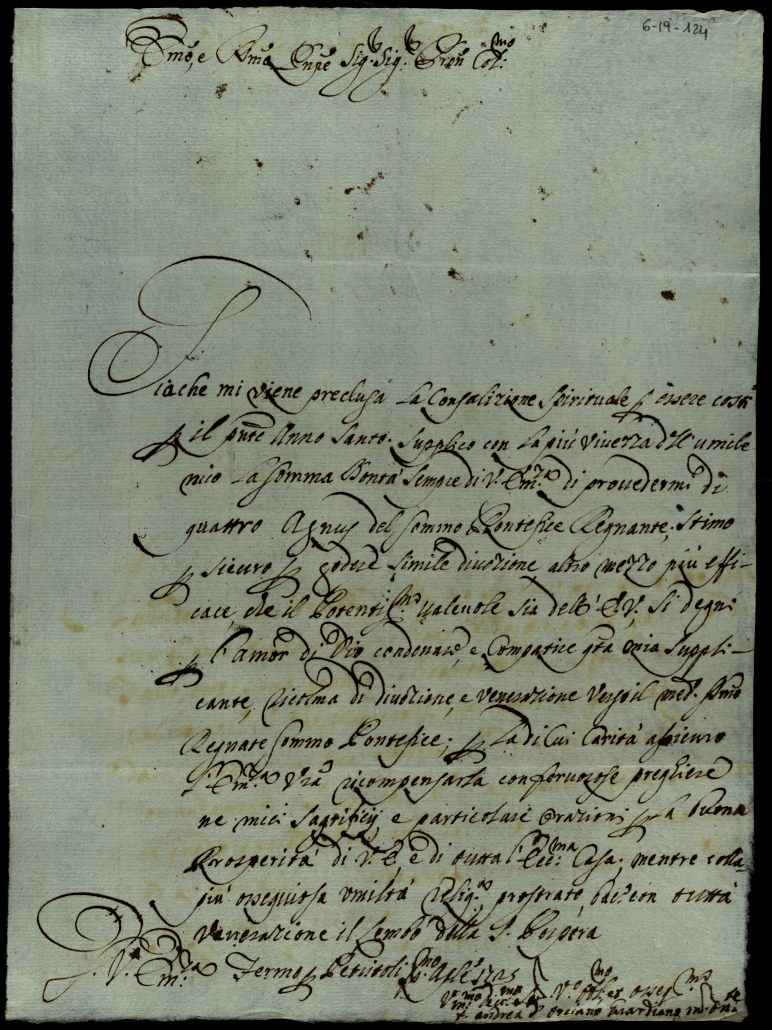 6-19-124
Emo, e Rmo Pnpe Sig. Sig. Pron Col:mo
Giache mi viene preclusa la Consolizione Spirituale p essere costi
p il pnte Anno Santo. Supplico con la più vivezza dell' umile
mio la somma Bontà sempre di V. Em.za di provedermi di
quattro Agnus del sommo Pontefice Regnante; stimo
p sicuro p godere simile divozione, altro mezzo più effi-
cace, che il Potentis.mo valevole sia dell' E. V. Si degni
p l'amor di Dio condonare, e Compatire qta mia Suppli-
cante, di divozione, e venerazione verso il med. Smo
Regnate sommo Pontefice; p la di lui Carità assicuro
l' Em.za Vra ricompensarla con fervorose preghiere
ne miei sagrificij, e particolari orazioni p la buona
Prosperità di V. E. e di tutta l' Ecc.ma Casa; mentre colla
più ossequiosa umiltà prostrato, bacio con tutta
Venerazione il lembo della S. Porpora
D. V. Em.za Fermo p Petritoli Aple 1725
V.mo ossequ.mo
f. andrea d' orciano Guardiano